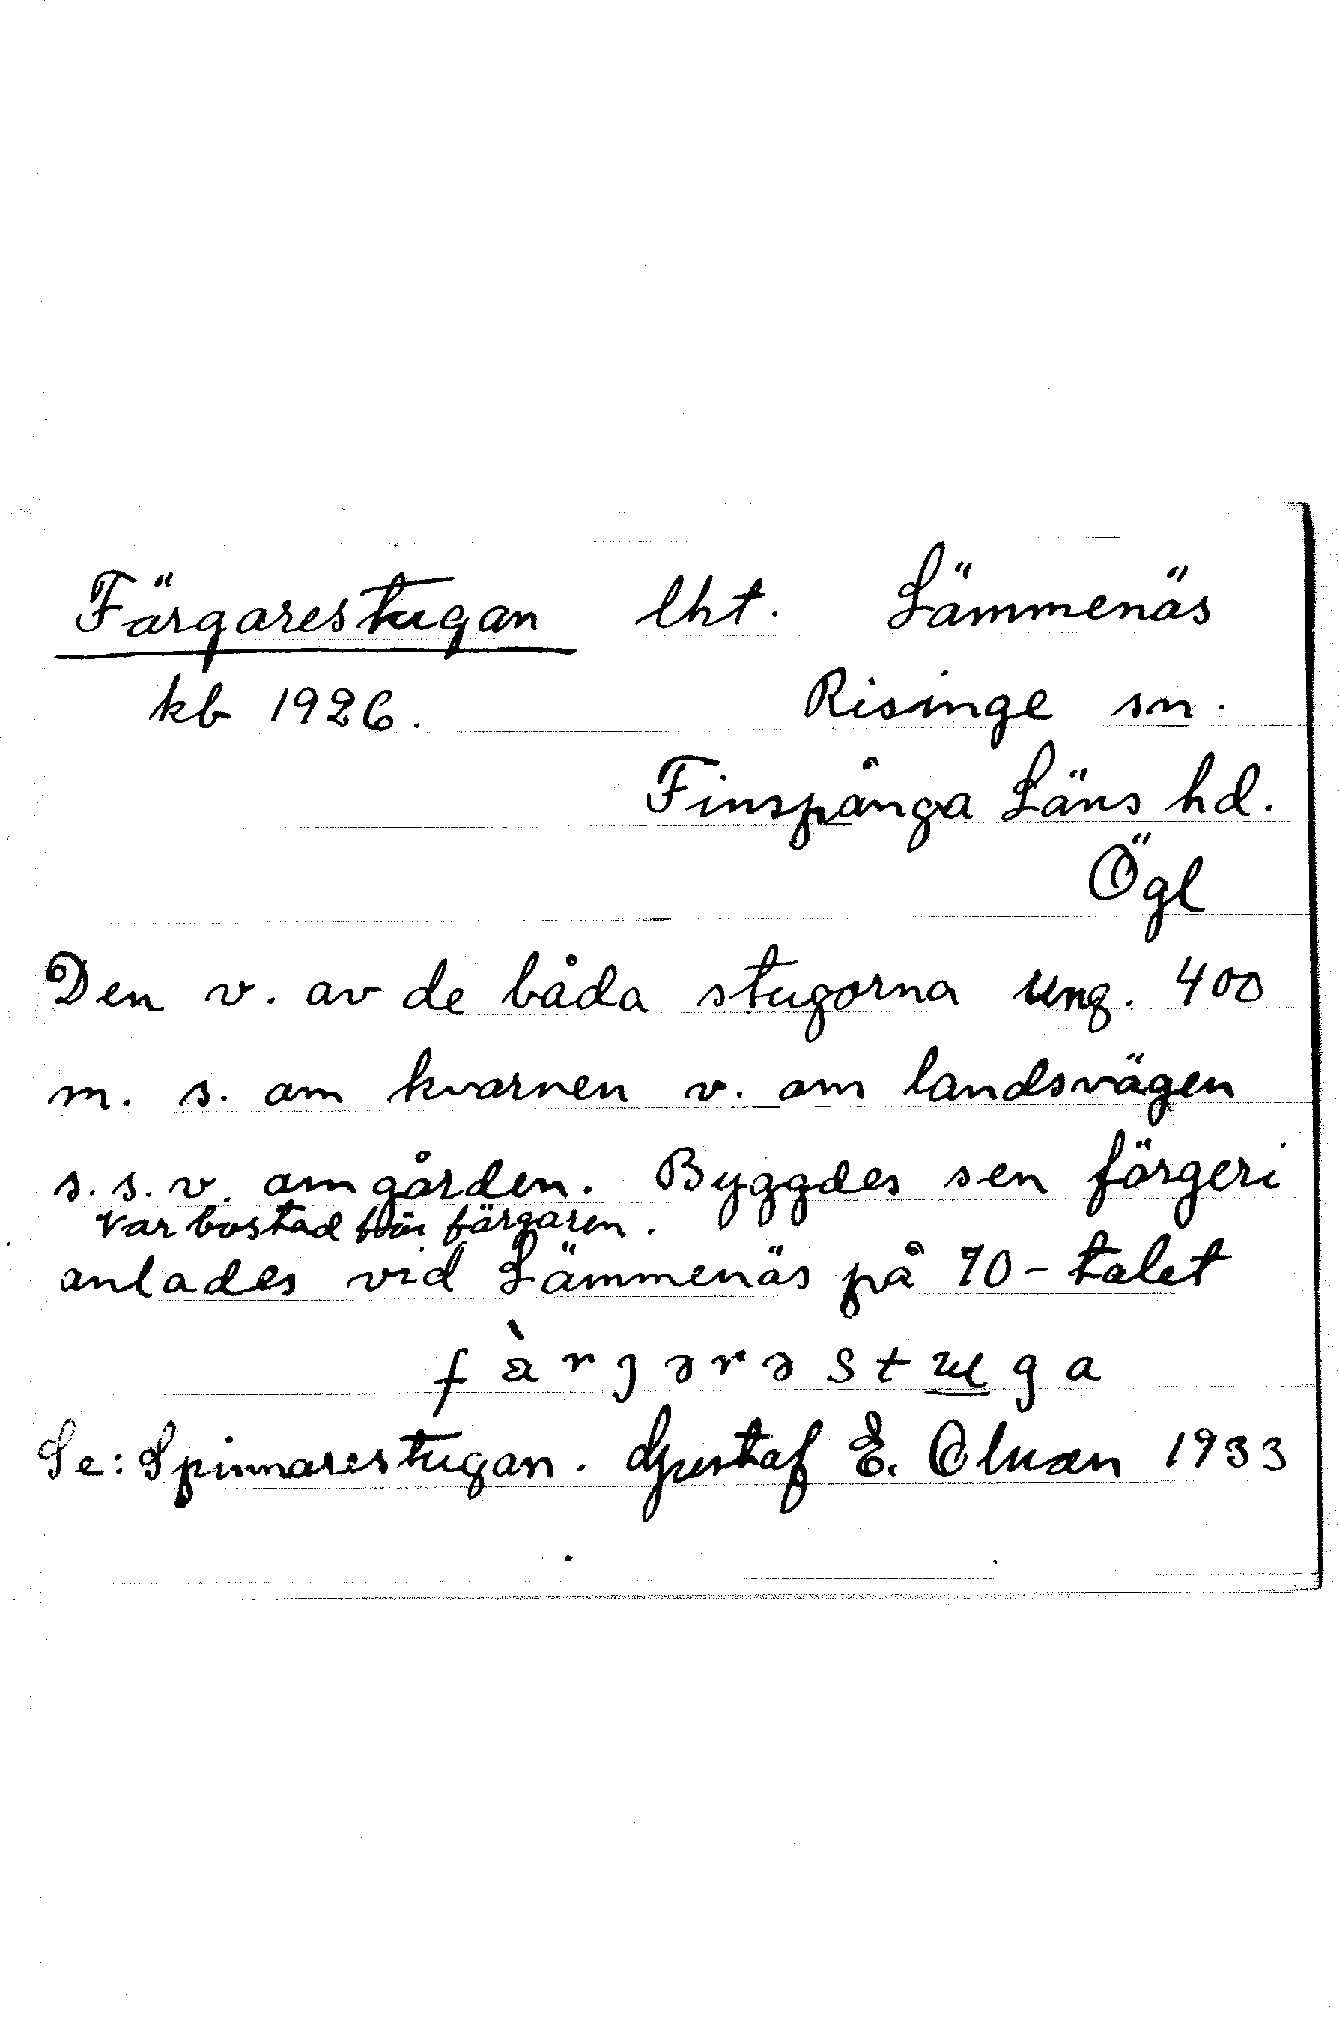 Färgarestugan lht. Lämmenäs
kb 1926. Risinge sn.
Finspånga Läns hd.
Ögl
Den v. av de båda stugorna ung. 400
m. s. om kvarnen v. om landsvägen
s. s. v. om gården. Byggdes sen färgeri
Var bostad för färgaren.
anlades vid Lämmenäs på 70-talet
fàrɟərəstuga
Se: Spinnarestugan. Gustaf E. Olsson 1933